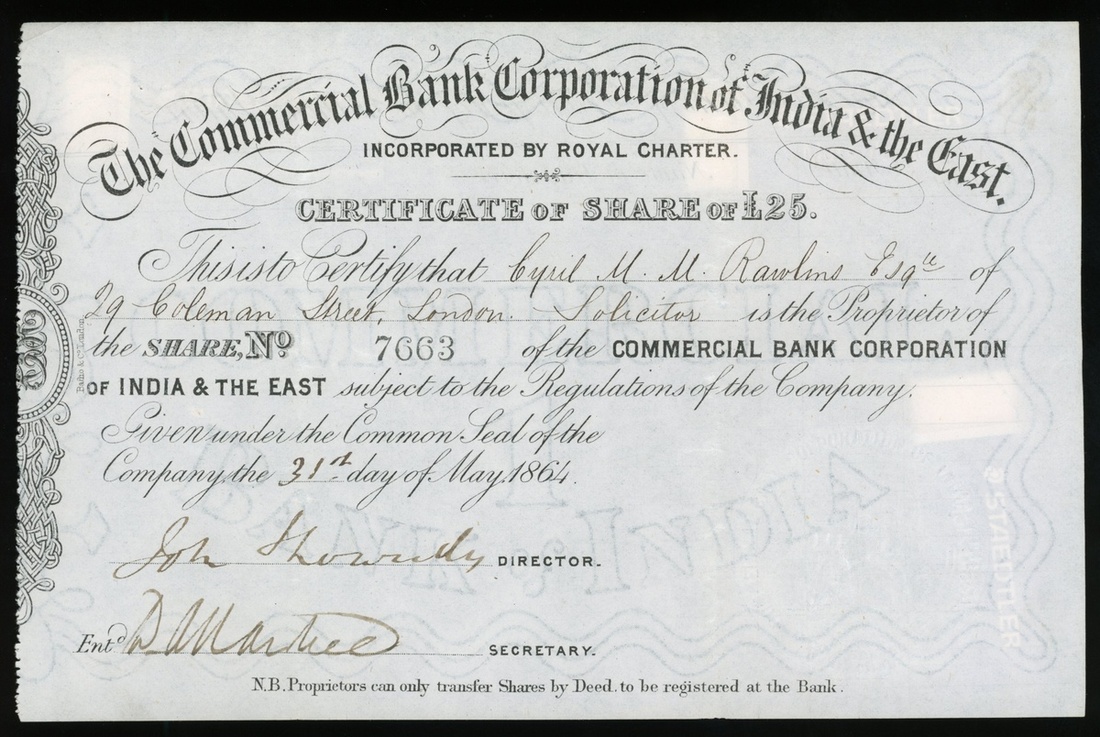 The Commercial Bank Corporation of India & the East.
INCORPORATED BY ROYAL CHARTER.
CERTIFICATE OF SHARE OF £25.
This is to Certify that Cyril M. M. Rawlins Esqre of
29 Coleman Street, London. Solicitor is the Proprietor of
the SHARE, No 7663 of the COMMERCIAL BANK CORPORATION
OF INDIA & THE EAST subject to the Regulations of the Company.
Given under the Common Seal of the
Company, the 31st day of May, 1864.
John DIRECTOR.
Entd SECRETARY.
N.B. Proprietors can only transfer Shares by Deed, to be registered at the Bank.
STAEDTLER